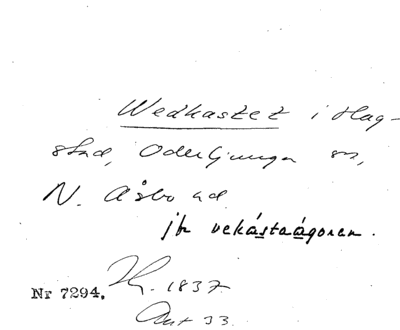 Wedkastet i Hag-
stad, Oderljunga sn,
N. Åsbo hd.
jfr vekástaágoren.
1837.
Nr 7294.
Akt 33.